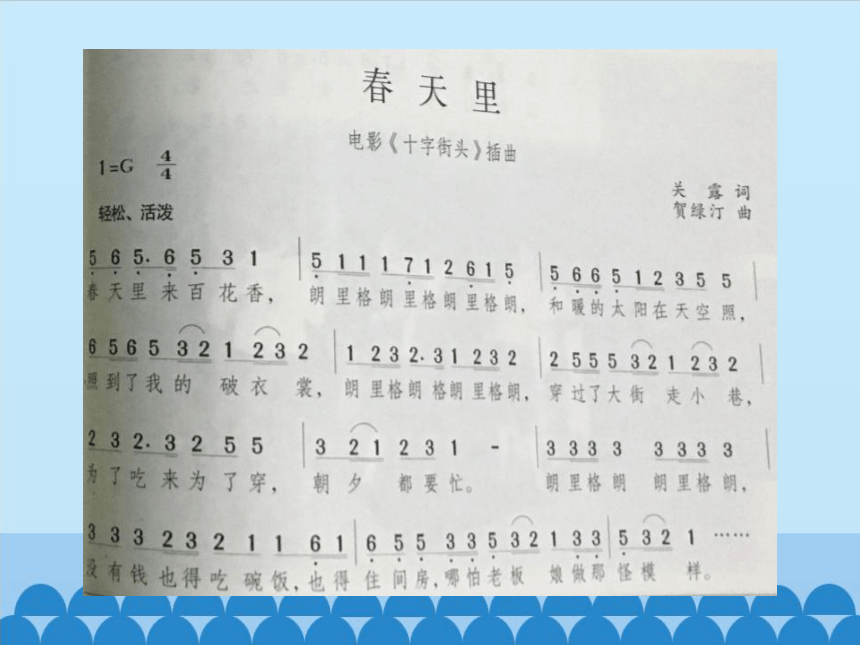 春天里
电影《十字街头》插曲
1=G 4/4
关露 词
轻松、活泼
贺绿汀 曲
5 6 5. 6 5 3 1 | 5 1 1 1 7 1 2 6 1 5 | 5 6 6 5 1 2 3 5 5 |
春天里来百花香， 朗里格朗里格朗里格朗， 和暖的太阳在天空照，
6 5 6 5 3 2 1 2 3 2 | 1 2 3 2. 3 1 2 3 2 | 2 5 5 5 3 2 1 2 3 2 |
照到了我的 破衣 裳， 朗里格朗格朗里格朗， 穿过了大街 走小巷，
2 3 2. 3 2 5 5 | 3 2 1 2 3 1 - | 3 3 3 3 3 3 3 3 |
为了吃来为了穿， 朝夕 都要忙。 朗里格朗 朗里格朗，
3 3 3 2 3 2 1 1 6 1 | 6 5 5 3 3 5 3 2 1 3 3 | 5 3 2 1 ……
没有钱也得吃碗饭，也得 住间房，哪怕老板 娘做那 怪模 样。